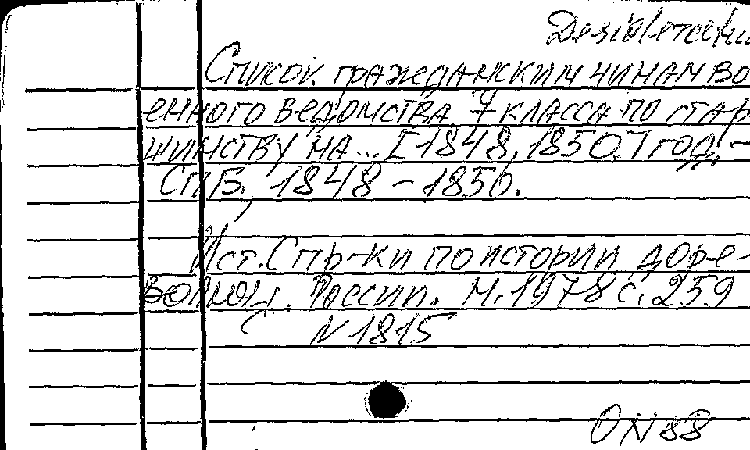 Desiderata
Список гражданским чинам во
енного ведомства 7 класса по стар
шинству на... [1848, 1850.] год. –
СПБ. 1848 – 1850.
Ист. Спр-ки по истории доре-
волюц. России. М. 1978 с. 259
N 1815
ON 88